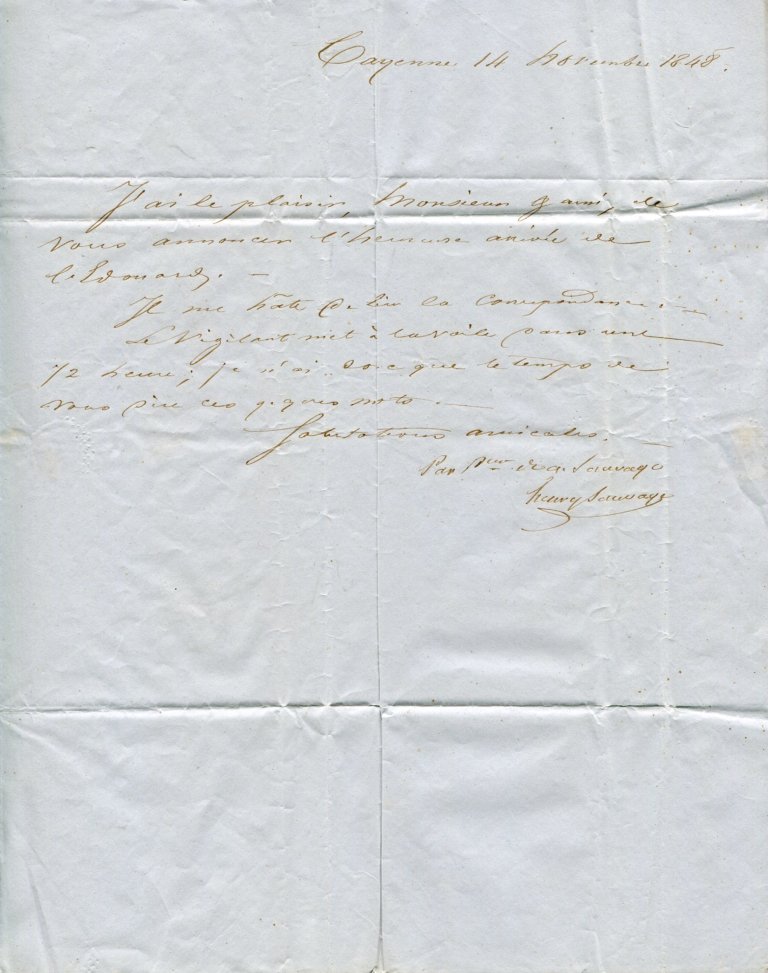 Cayenne 14 Novembre 1848.
J'ai le plaisir, Monsieur & ami, de
vous annoncer l'heureuse arrivée de
l'Edouard. —
Je me hâte de lire la correspondance. —
Le Vigilant met à la voile dans une
1/2 heure; je n'ai donc que le temps de
vous dire ces q.ques mots. —
Salutations amicales. —
Par de A. Sauvage
henry Sauvage